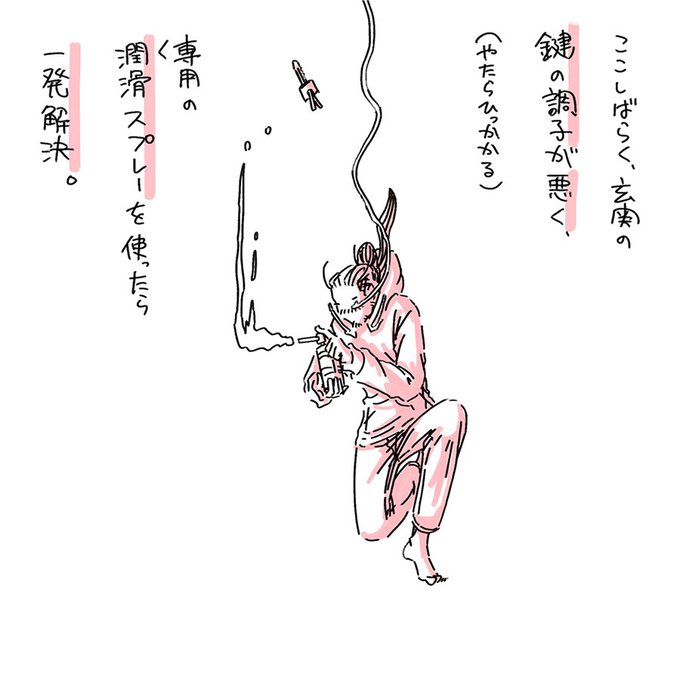 ここしばらく、玄関の
鍵の調子が悪く、
（やたらひっかかる）
専用の
潤滑スプレーを使ったら
一発解決。